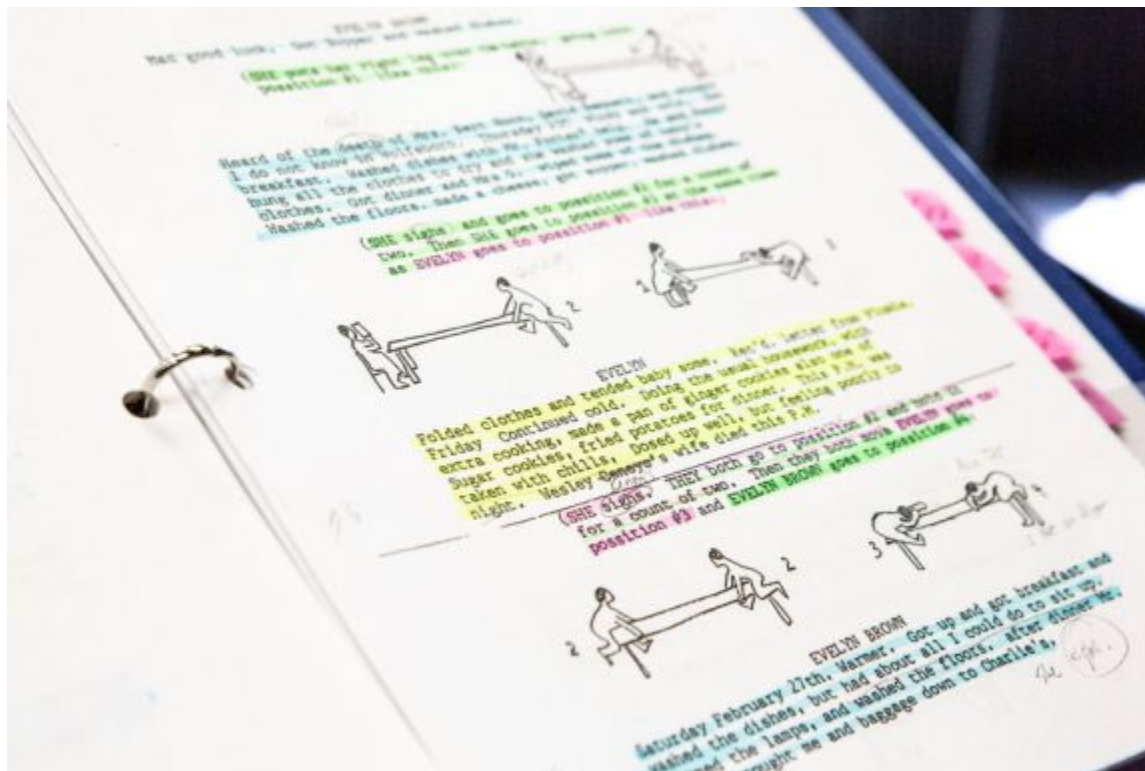 EVELYN BROWN
Had good luck, Got Supper and washed dishes.
(SHE puts her right leg over the
possition #1 like this:
Heard of the death of Mrs.
I do not know in Wolfeboro. Thursday
breakfast. Washed dishes with Mr.
hung all the clothes to try and
clothes. Got dinner and
Washed the floors, made a cheese, got supper, washed dishes.
(SHE sighs and goes to possition #2 for a count of
two. Then SHE goes to possition #3 at the same time
as EVELYN goes to possition #1 like this:
2
1
1
EVELYN
Folded clothes and tended baby some. Rec'd. letter from
Friday Continued cold. Doing the usual housework, with
extra cooking, made a pan of ginger cookies also one of
Sugar cookies, fried potatoes for dinner. This P.M. was
taken with chills, Dosed up well, but feeling poorly to
night. Wesley wife died this P.M.
(SHE sighs. THEY both go to possition #2 and hold it
for a count of two. Then they both move EVELYN goes to
possition #3 and EVELYN BROWN goes to possition #4.
2
2
3
4
EVELYN BROWN
Saturday February 27th, Warmer. Got up and got breakfast and
washed the dishes, but had about all I could do to sit up.
the lamps, and washed the floors, after dinner Mr.
brought me and baggage down to Charlie's,